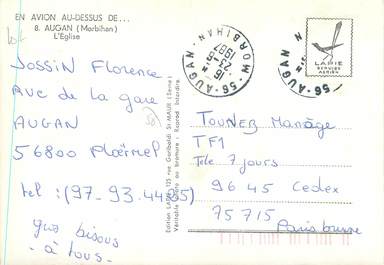 EN AVION AU-DESSUS DE...
8. AUGAN (Morbihan)
L'Eglise
JOSSIN Florence
Rue de la gare
AUGAN
56800 Ploërmel
tel : (97-93.4485)
gros bisous
- à tous -
Edition LAPIE 125 rue Garibaldi St MAUR (Seine)
Véritable photo au bromure - Reprod. Interdite
56 - AUGAN
MORBIHAN
1987
LAPIE
SERVICE
AERIEN
TOURNEZ Manège
TF1
Tele 7 jours
96 45 Cedex
75 715
Paris brune